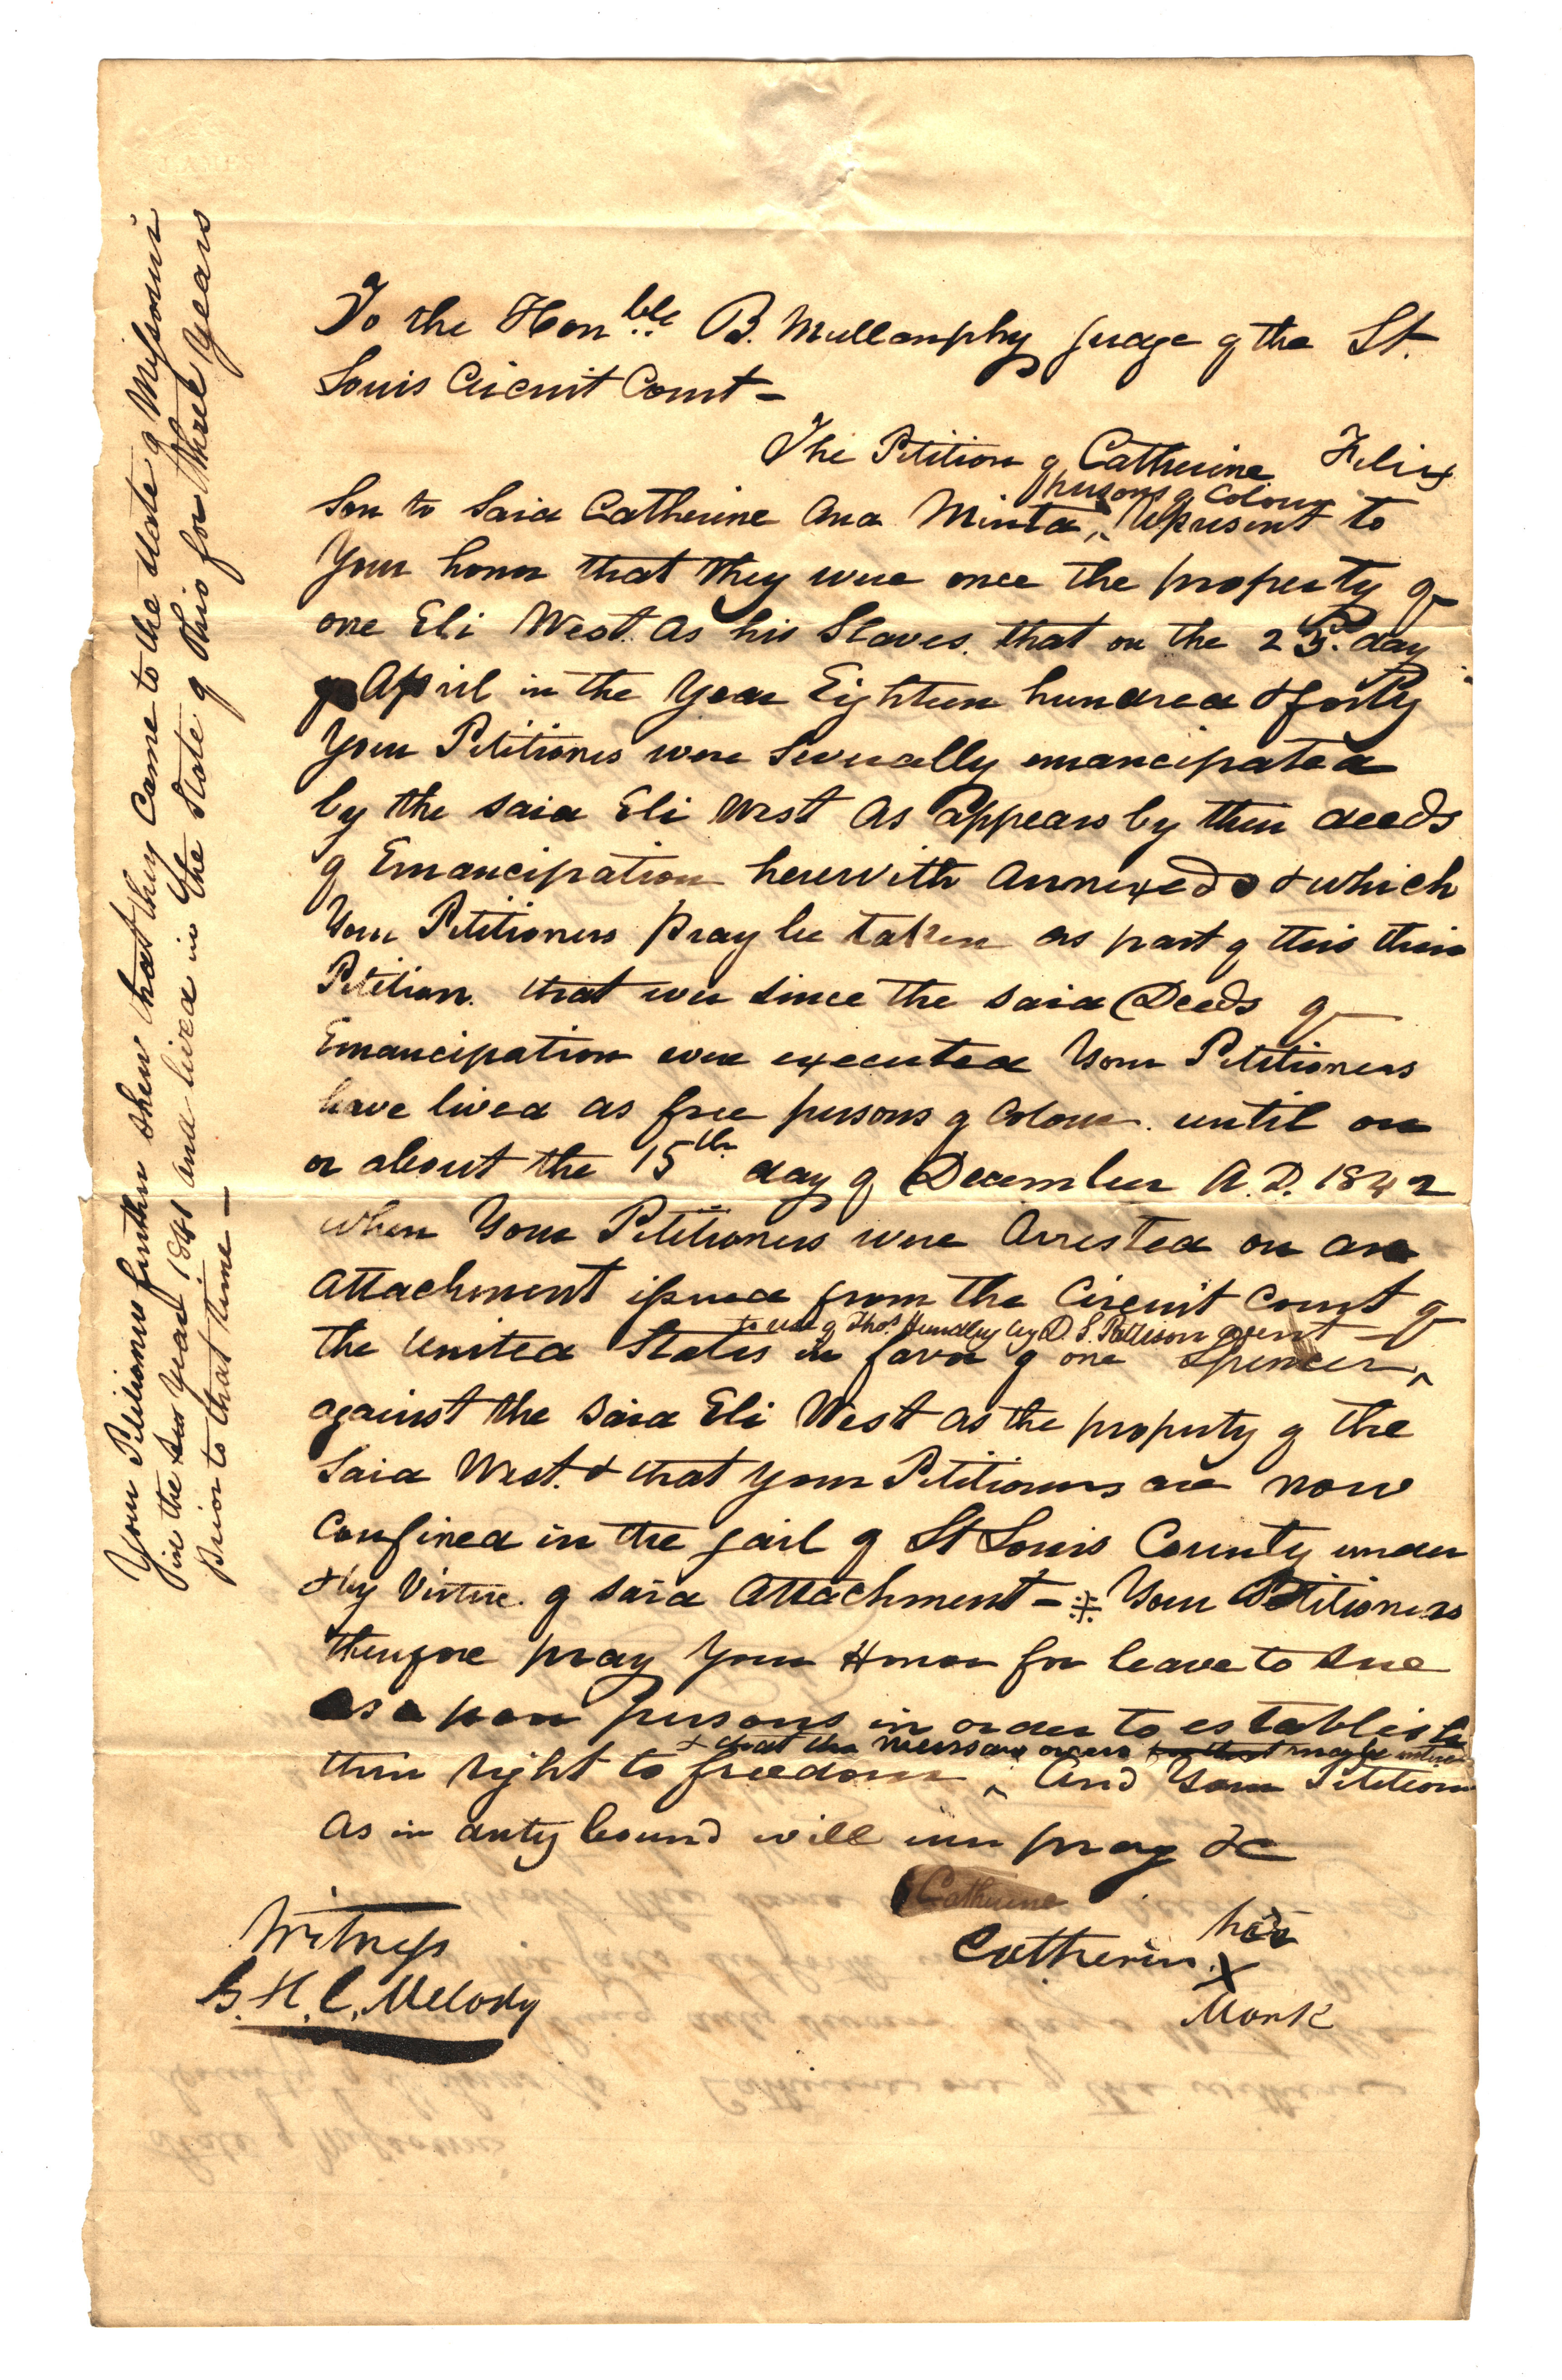 To the Honble B. Mullanphy Judge of the St.
Louis Circuit Court –
The Petition of Catherine Felix
persons of Colour
Son to said Catherine and Minta, ^ represent to
Your honor that they were once the property of
one Eli West. as his Slaves. that on the 25. day
April in the Year Eighteen hundred & forty
Your Petitioners were severally emancipated
by the said Eli West as appears by their deeds
of Emancipation herewith annexed & which
Your Petitioners pray be taken as part of this their
Petition. that ever since the said Deeds of
Emancipation were executed Your Petitioners
have lived as free persons of Colour. until on
or about the 15th day of December A.D. 1842
when Your Petitioners were Arrested on an
Attachment issued from the Circuit Court of
to use of Thos. Hundley by D. S. Pattison agent
the United States in favor of one Spencer ^
against the said Eli West as the property of the
said West. & that your Petitioners are now
Confined in the Jail of St Louis County under
& by Virtue of said Attachment – ※ Your Petitioners
therefore pray Your Honor for leave to sue
as poor persons in order to establish
& that the necessary orders may be
their right to freedom ^ And Your Petitioners
As in duty bound will ever pray &c
Catherine
Witness
her
Catherine X
G. H. C. Melody
Mark
Your Petitioners further shew that they came to the State of Missouri
in the Year 1841 and lived in the State of Ohio for three Years
prior to that time –